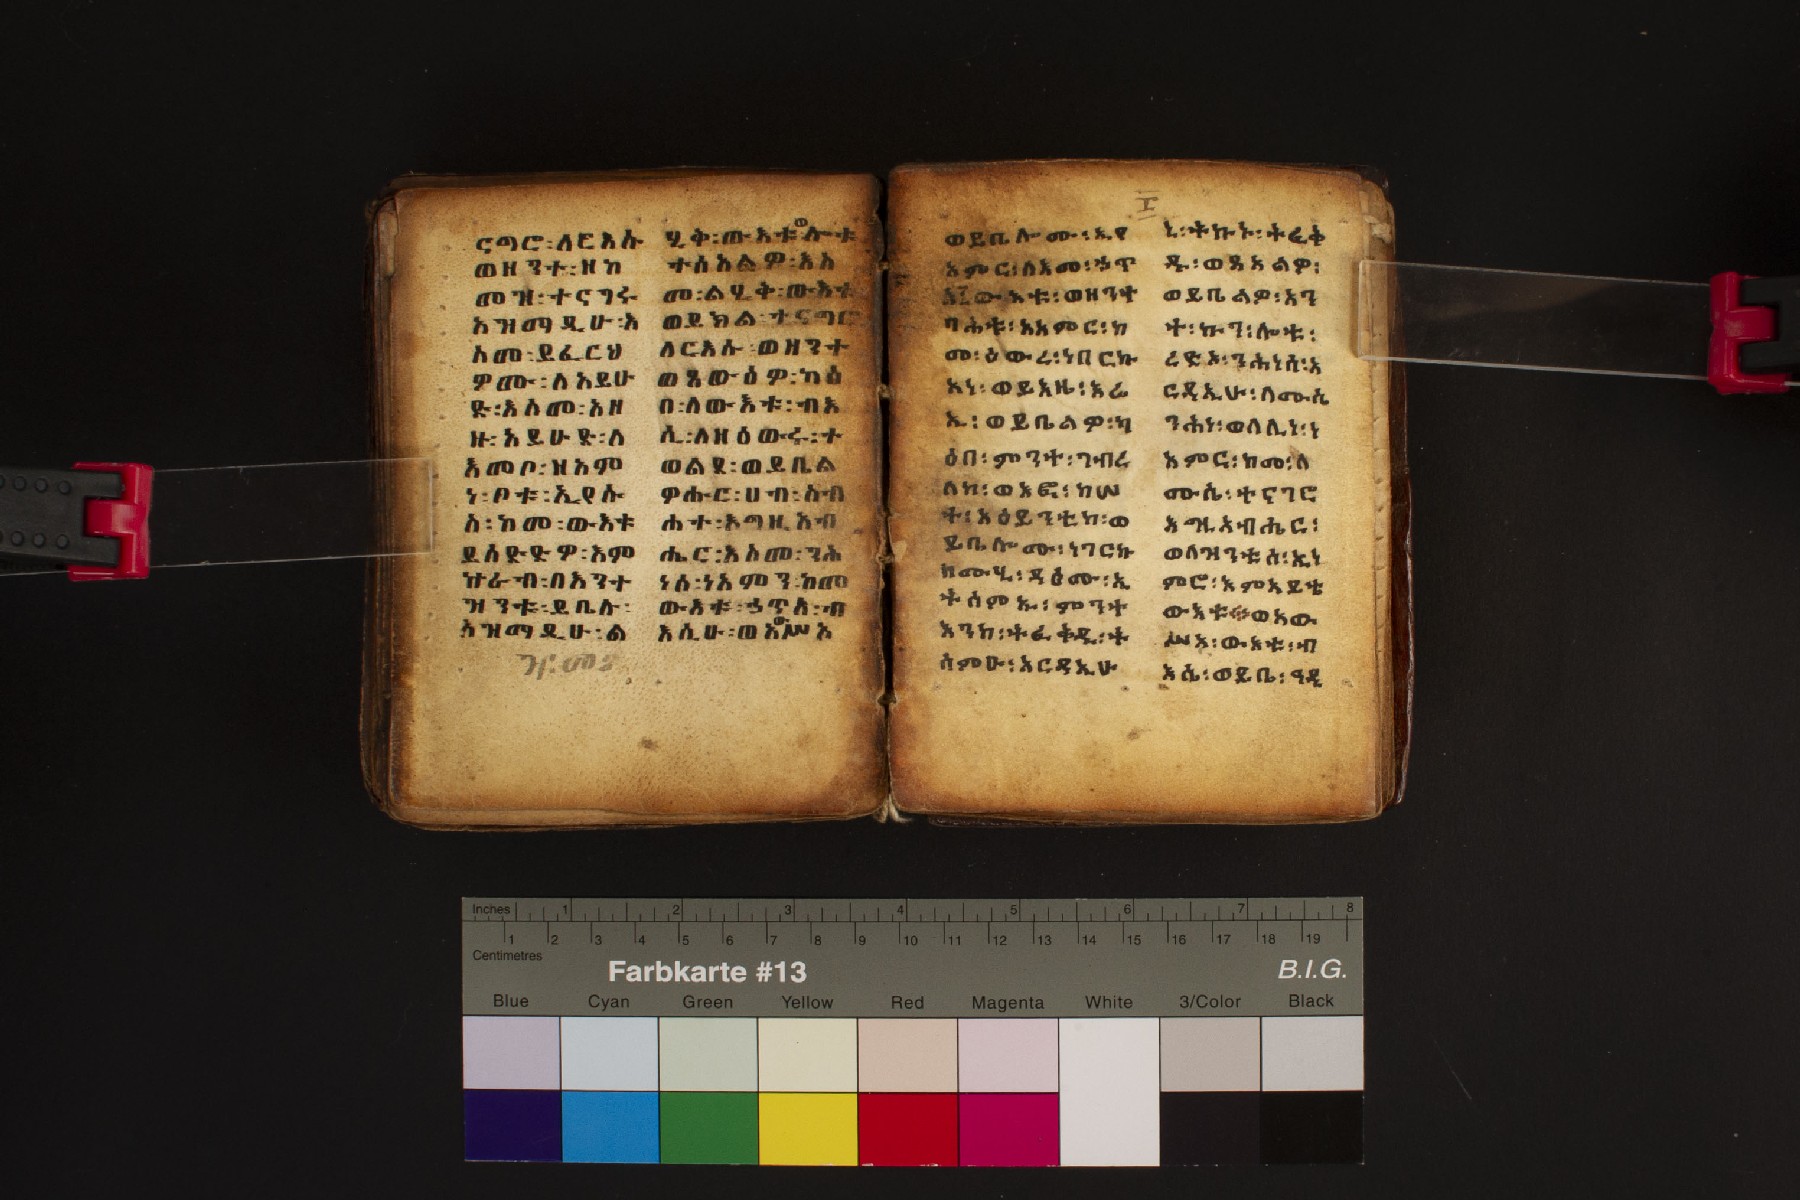 ሮጣሮ፡ለርእሱ
ወዘንተ፡ዘከ
መዝ፡ተናገሩ
አዝማዲሁ፡እ
እመ፡ይፈርህ
ዎሙ፡ለአይሁ
ድ፡እስመ፡አዘ
ዙ፡አይሁድ፡ለ
እመቦ፡ዝአም
ነ፡ቦቱ፡ኢየሱ
ስ፡ከመ፡ውእቱ
ይሰድድዎ፡እም
ዝንቱ፡ይቤሉ፡
አዝማዲሁ፡ል
ሂቅ፡ውእቱ
ተሰአልዎ፡እአ
መ፡ልሂቅ፡ውእቱ
ወይክል፡ተናግሮ
ለርእሱ፡ወዘንተ
ወጼውዕዎ፡ካዕ
በ፡ለውእቱ፡ብእ
ሲ፡ለዘዕውሩ፡ተ
ወልደ፡ወይቤል
ዎሑር፡ሀብ፡ስብ
ሐተ፡እግዚአብ
ሔር፡እስመ፡ንሕ
ነሰ፡ነአምን፡ከመ
ውእቱ፡ኃጥእ፡ብ
እሲሁ፡ወአ
I
ወይቤሎሙ፡ኢየ
አምር፡ለእመ፡ኃጥ
እ ውእቱ፡ወዘንተ
ባሕቱ፡አአምር፡ከ
መ፡ዕውረ፡ነበርኩ
አነ፡ወይእዜ፡እሬ
ኢ፡ወይቤልዎ፡ካ
ዕበ፡ምንተ፡ገብረ
ለከ፡ወእፎ፡ከሠ
ተ፡አዕይንቲከ፡ወ
ይቤሎሙ፡ነገርኩ
ክሙሂ፡ ኢ
ትሰምኡ፡ምንተ
እንከ፡ትፈቅዱ፡ት
ስምዑ፡አርዳኢሁ
ኒ፡ትኩኑ፡ትፈቅ
ዱ፡ወጸአልዎ፡
ወይቤልዎ፡አን
ት፡ኩን፡ሎቱ፡
ረድኦ፡ንሕነሰ፡አ
ርዳኢሁ፡ለሙሴ
ንሕነ፡ወለሊነ፡ነ
አምር፡ከመ፡ለ
ሙሴ፡ተናገሮ
እግዚአብሔር፡
ወለዝንቱሰ፡ኢነ
ምሮ፡እምአይቴ
ውእቱ፡ወአው
ሥአ፡ውእቱ፡ብ
እሲ፡ወይቤ፡ዓዲ
Inches 1 2 3 4 5 6 7 8
1 2 3 4 5 6 7 8 9 10 11 12 13 14 15 16 17 18 19
Centimetres
Farbkarte #13 B.I.G.
Blue Cyan Green Yellow Red Magenta White 3/Color Black